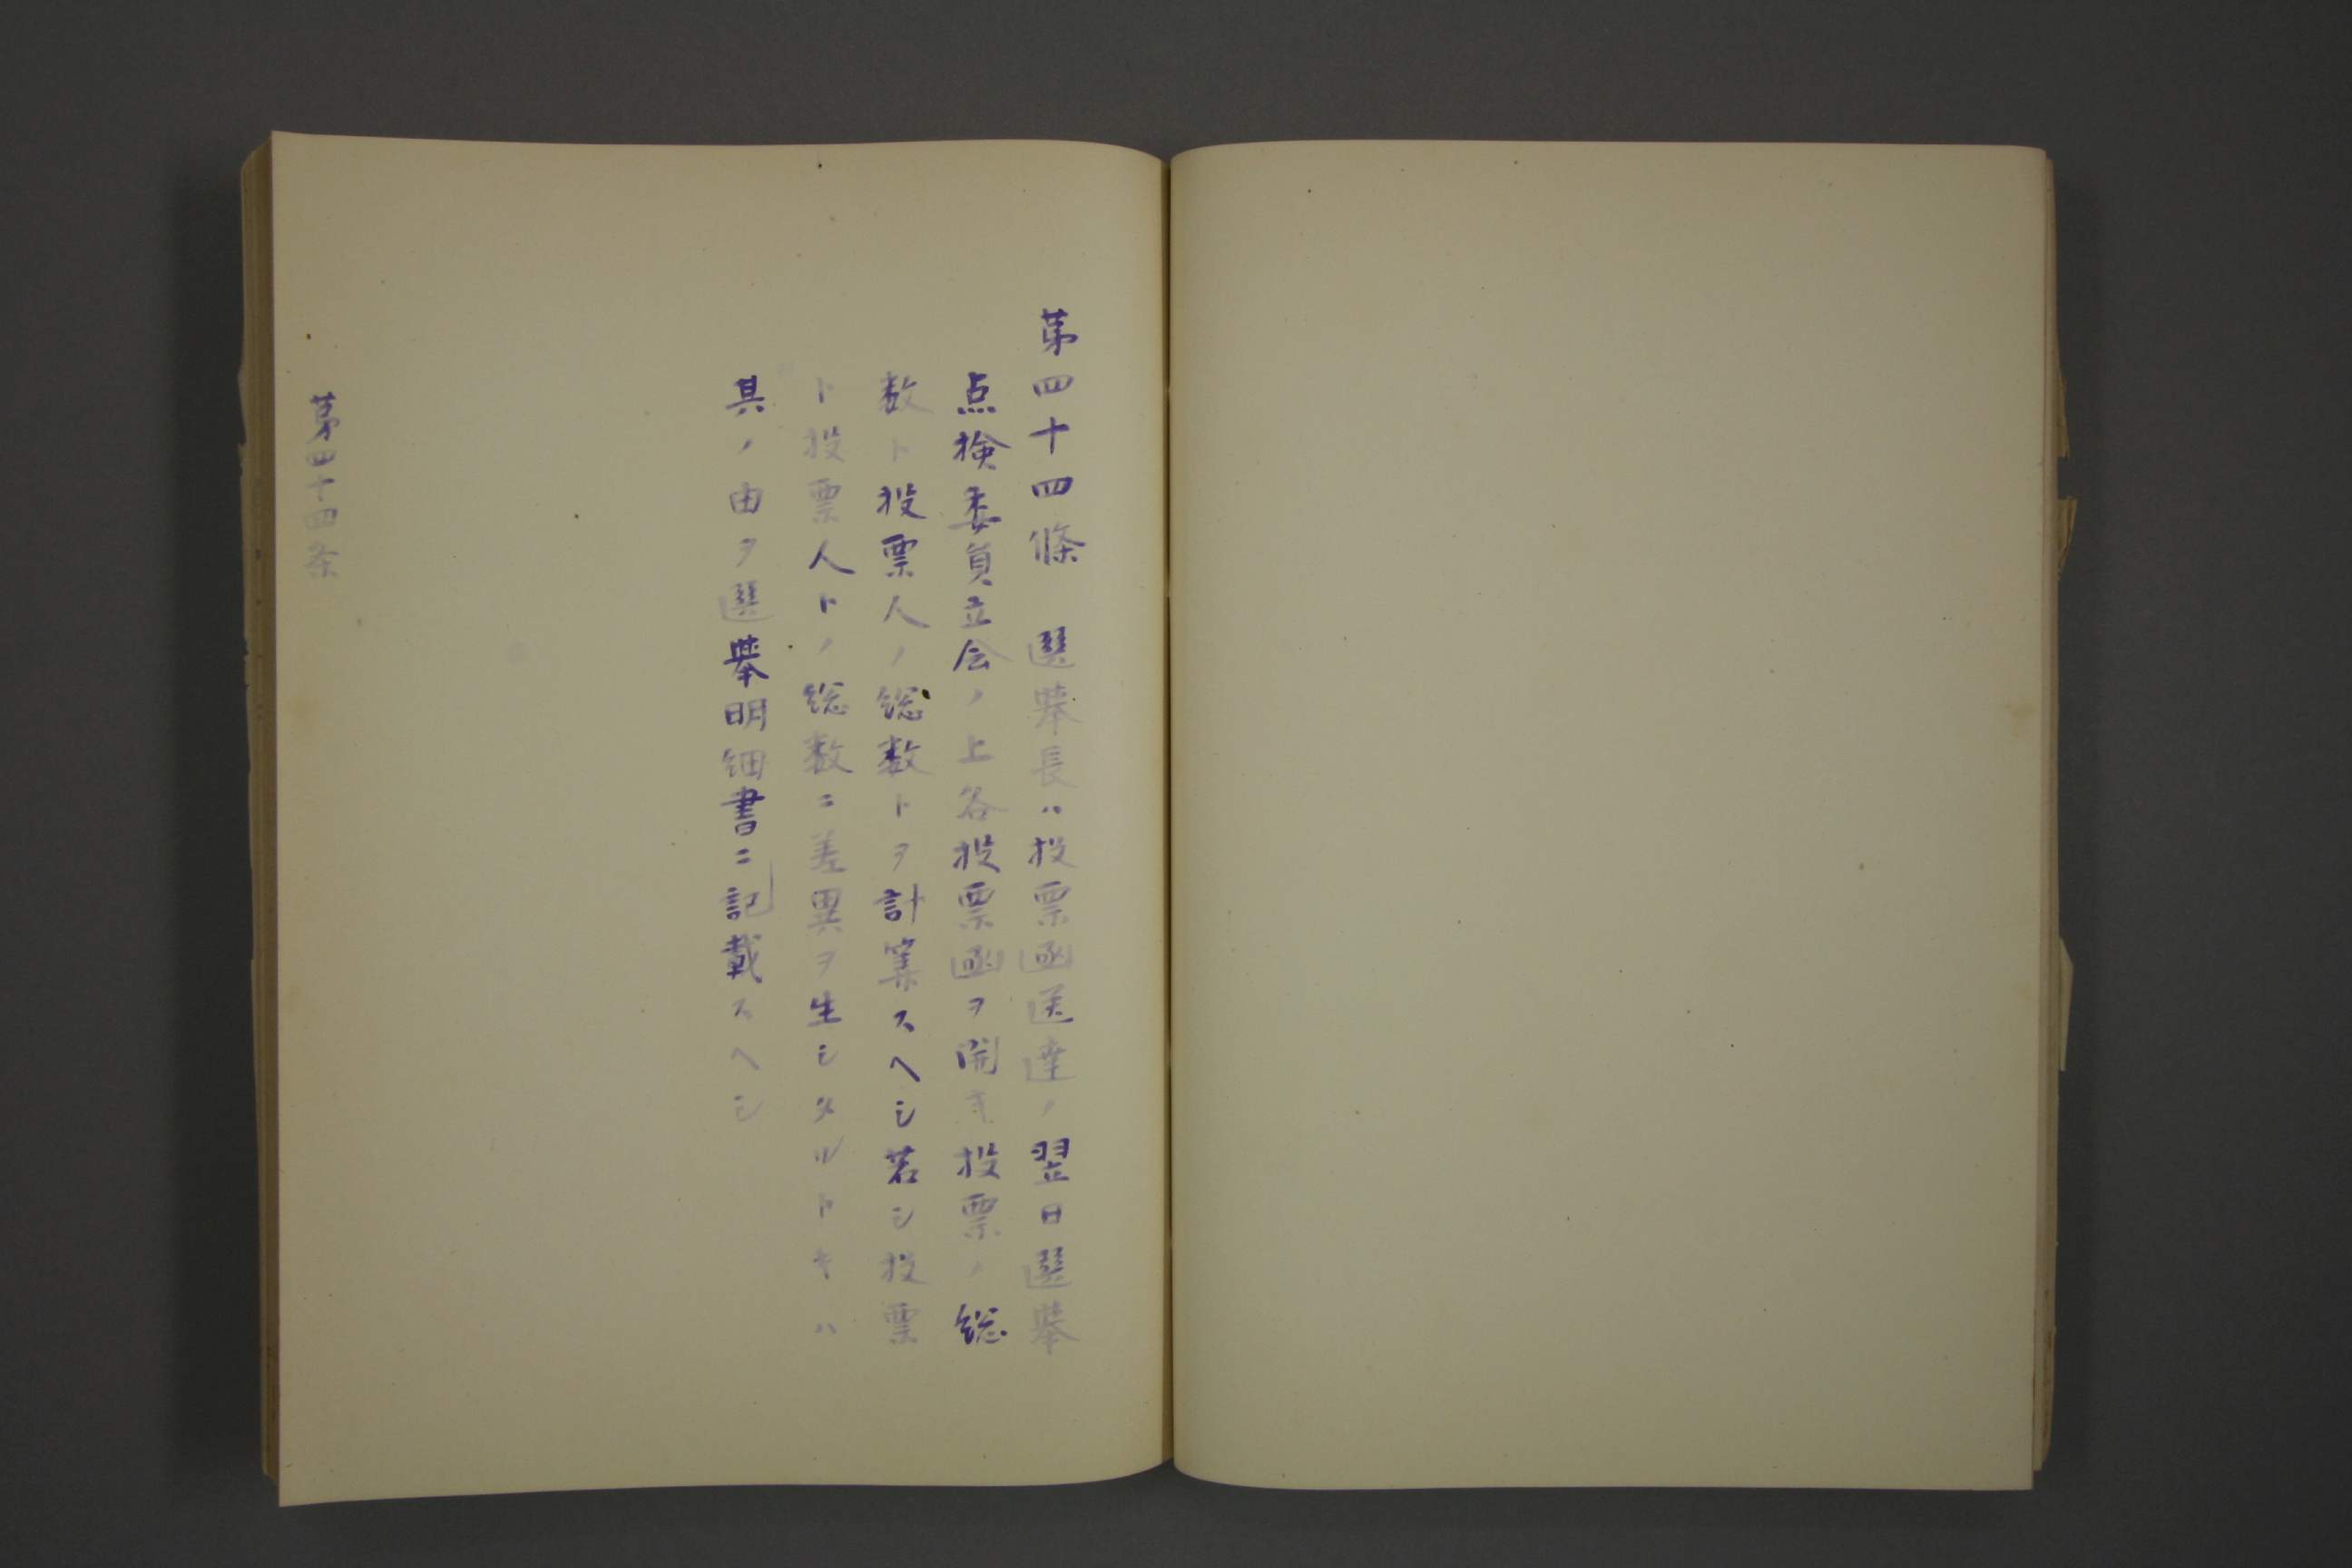 第四十四條　選挙長ハ投票函送達ノ翌日選挙
点検委員立会ノ上各投票函ヲ開キ投票ノ総
数ト投票人ノ総数トヲ計算スヘシ若シ投票
ト投票人トノ総数ニ差異ヲ生シタルトキハ
其ノ由ヲ選挙明細書ニ記載スヘシ
第四十四条